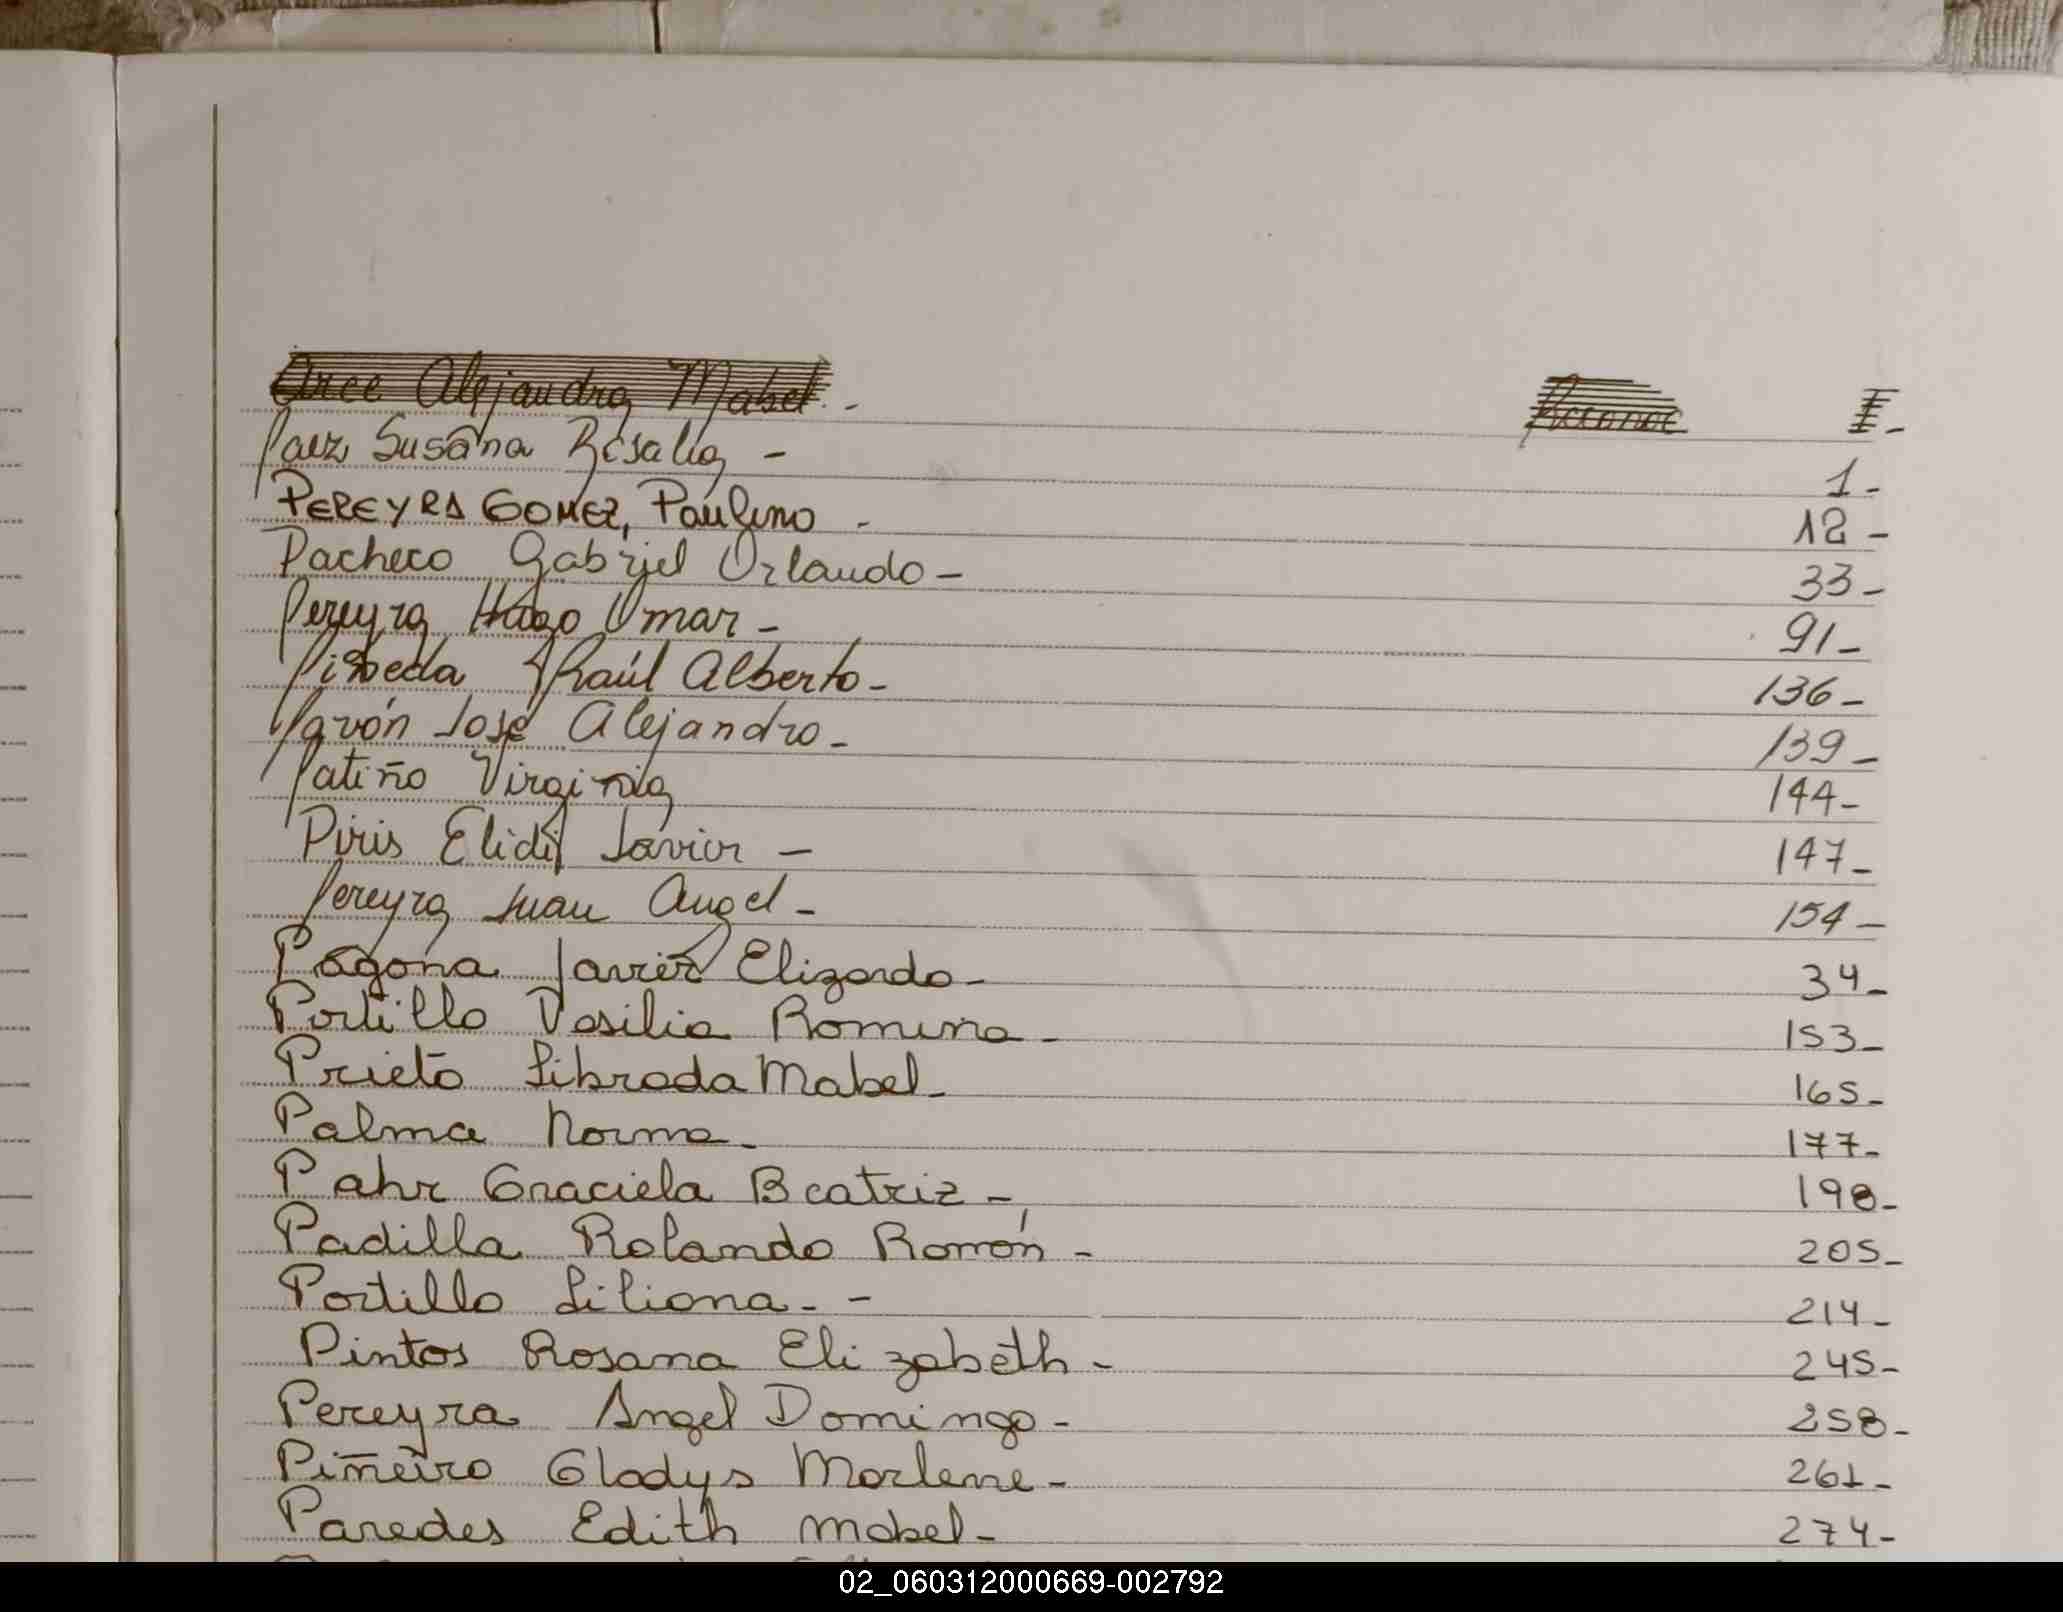 Arce Alejandra Mabel - I -
Paez Susana Rosalia - 1 -
PEREYRA GOMEZ, Paulino - 12 -
Pacheco Gabriel Orlando - 33 -
Pereyra Hugo Omar - 91 -
Pineda Raúl Alberto - 136 -
Pavón José Alejandro - 139 -
Patiño Virginia 144 -
Piris Elidil Javier - 147 -
Pereyra Juan Angel - 154 -
Pagona Javier Elizardo - 34 -
Portillo Vasilia Romina - 153 -
Prieto Librada Mabel - 165 -
Palma Norma - 177 -
Pahr Graciela Beatriz - 198 -
Padilla Rolando Román - 205 -
Portillo Liliana - - 214 -
Pintos Rosana Elizabeth - 245 -
Pereyra Angel Domingo - 258 -
Piñeiro Gladys Marlene - 261 -
Paredes Edith Mabel - 274 -
02_060312000669-002792